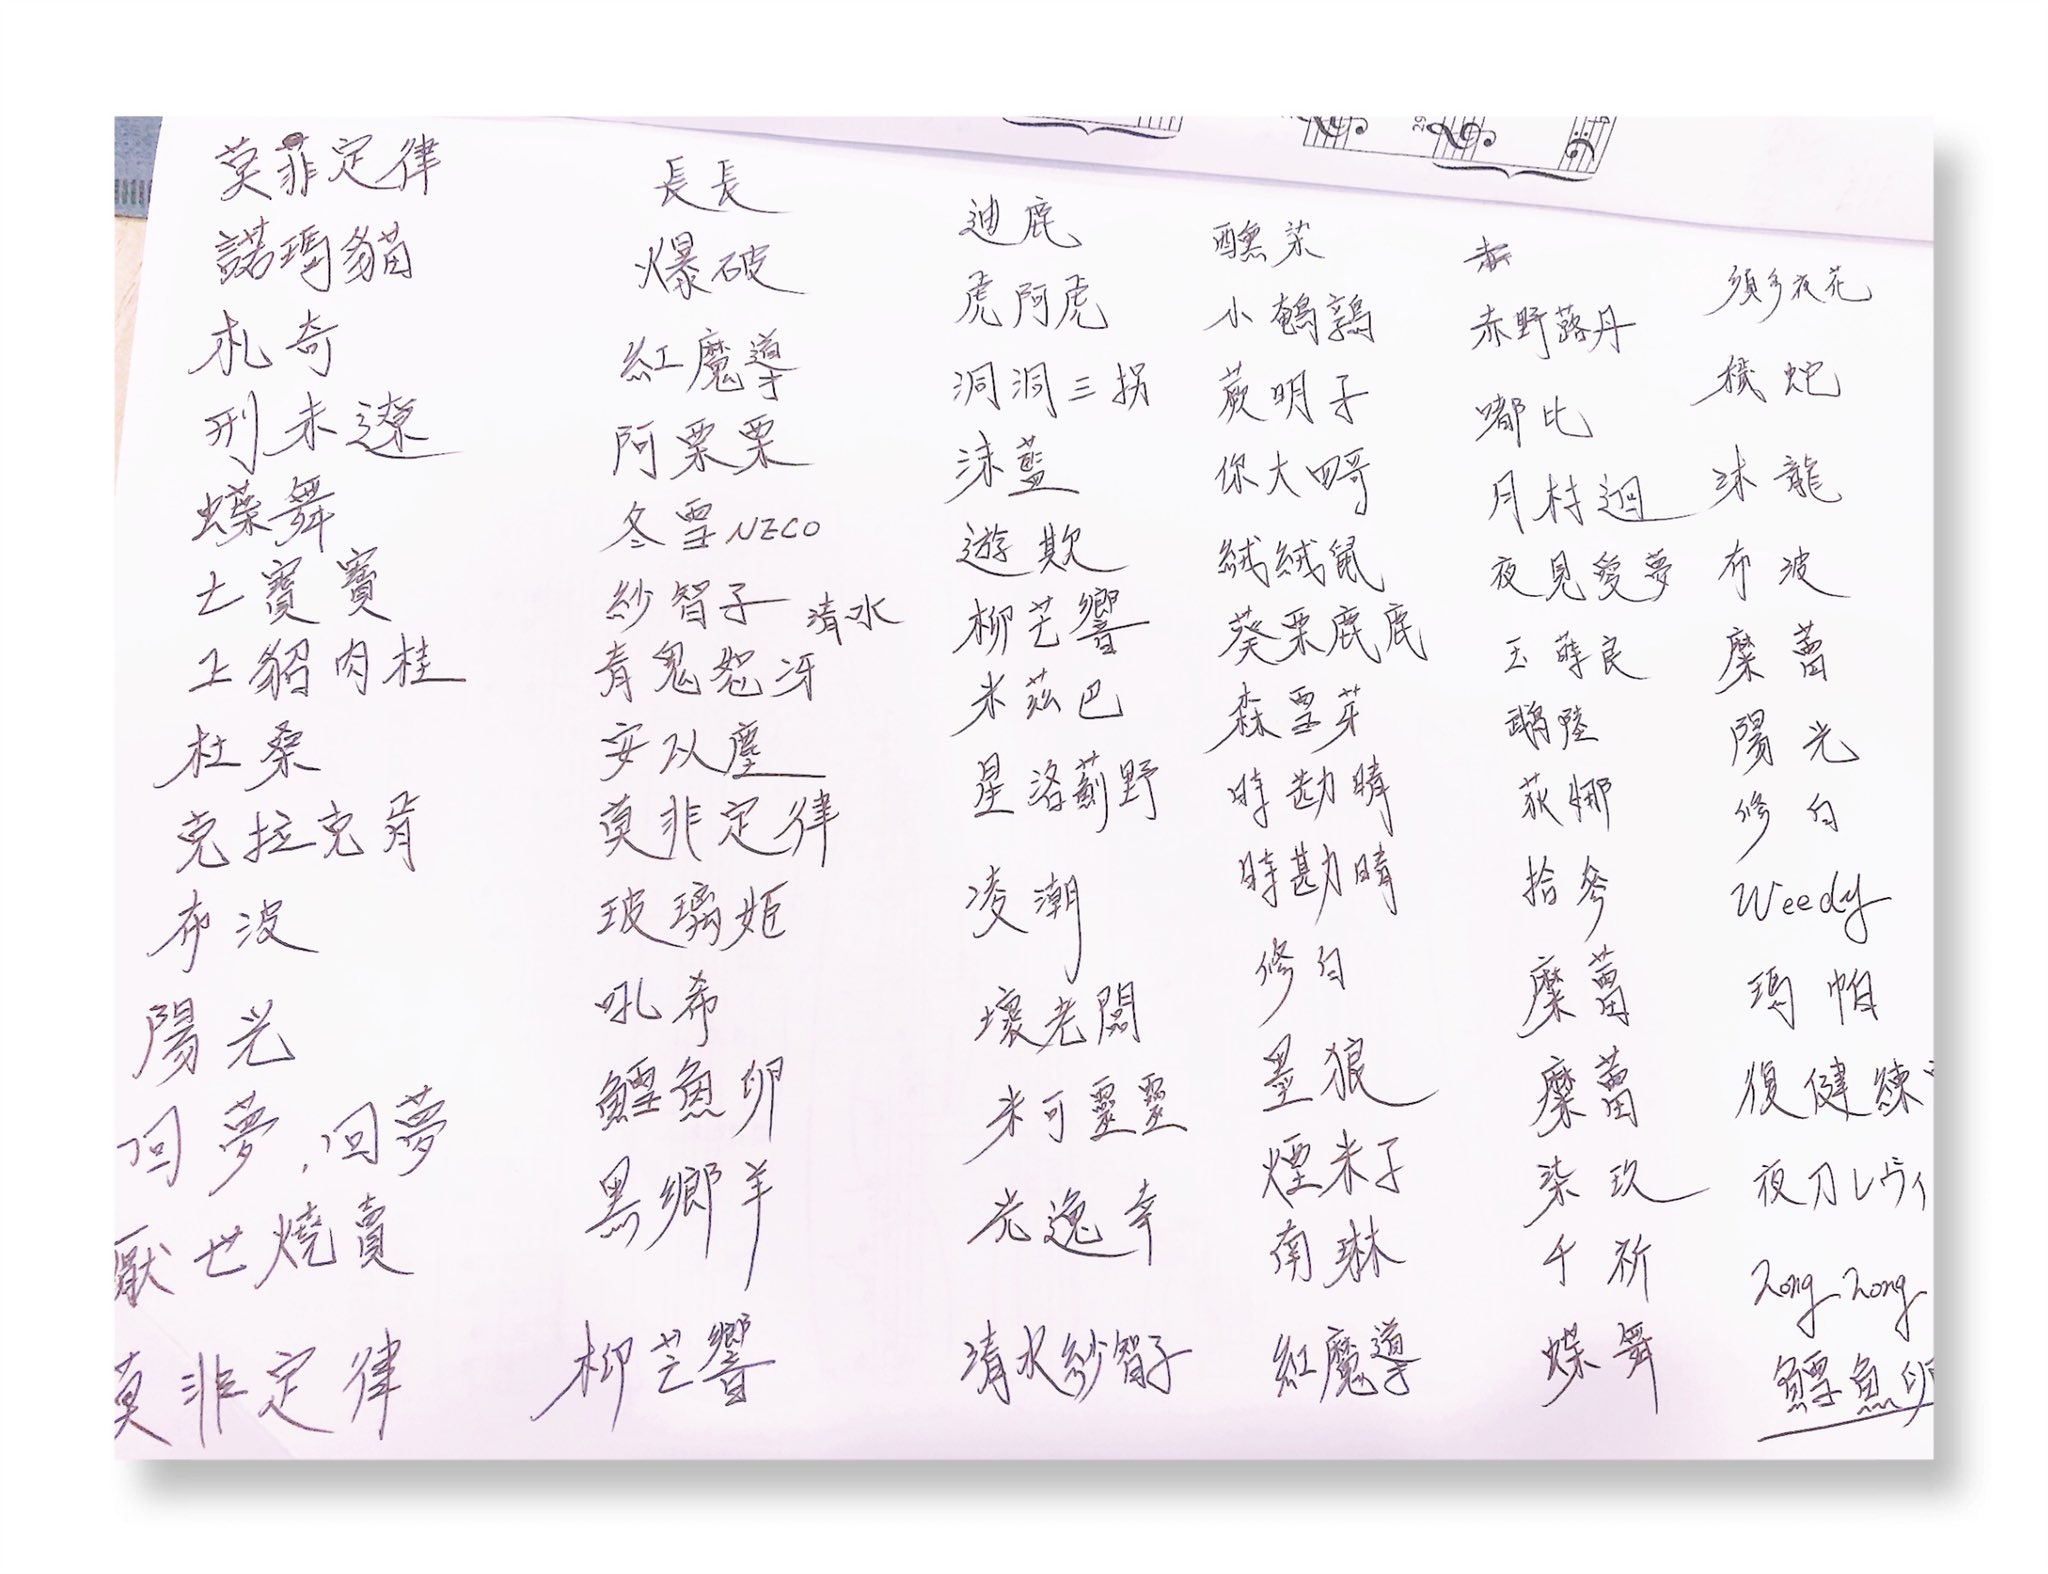 莫菲定律
諾瑪貓
札奇
刑未遼
蝶舞
七寶寶
工貂肉桂
杜桑
克拉克肯
布波
陽光
回夢,回夢
厭世燒賣
莫非定律
長長
爆破
紅魔導
阿栗栗
冬雪NECO
紗智子 清水
青鬼恕冴
安以塵
莫非定律
玻璃姬
吼希
鱈魚卵
黑鄉羊
柳芒響
迪鹿
虎阿虎
洞洞三拐
沫藍
遊欺
柳芒響
米茲巴
星洛薊野
凌潮
壞老闆
米可靈靈
光逸幸
清水紗智子
醺柒
小鵪鶉
蕨明子
你大哥
絨絨鼠
葵栗鹿鹿
森雪芽
時勘晴
時勘晴
修白
墨狼
煙米子
南琳
紅魔導
赤野蕗丹
嘟比
月村迴
夜見愛夢
玉薛良
鵡陸
荻娜
拾參
糜蕾
糜蕾
染玖
千祈
蝶舞
須多夜花
機蛇
沐龍
布波
糜蕾
陽光
修白
Weedy
瑪帕
復健練
夜刀レヴィ
Zong Zong
鱈魚卵